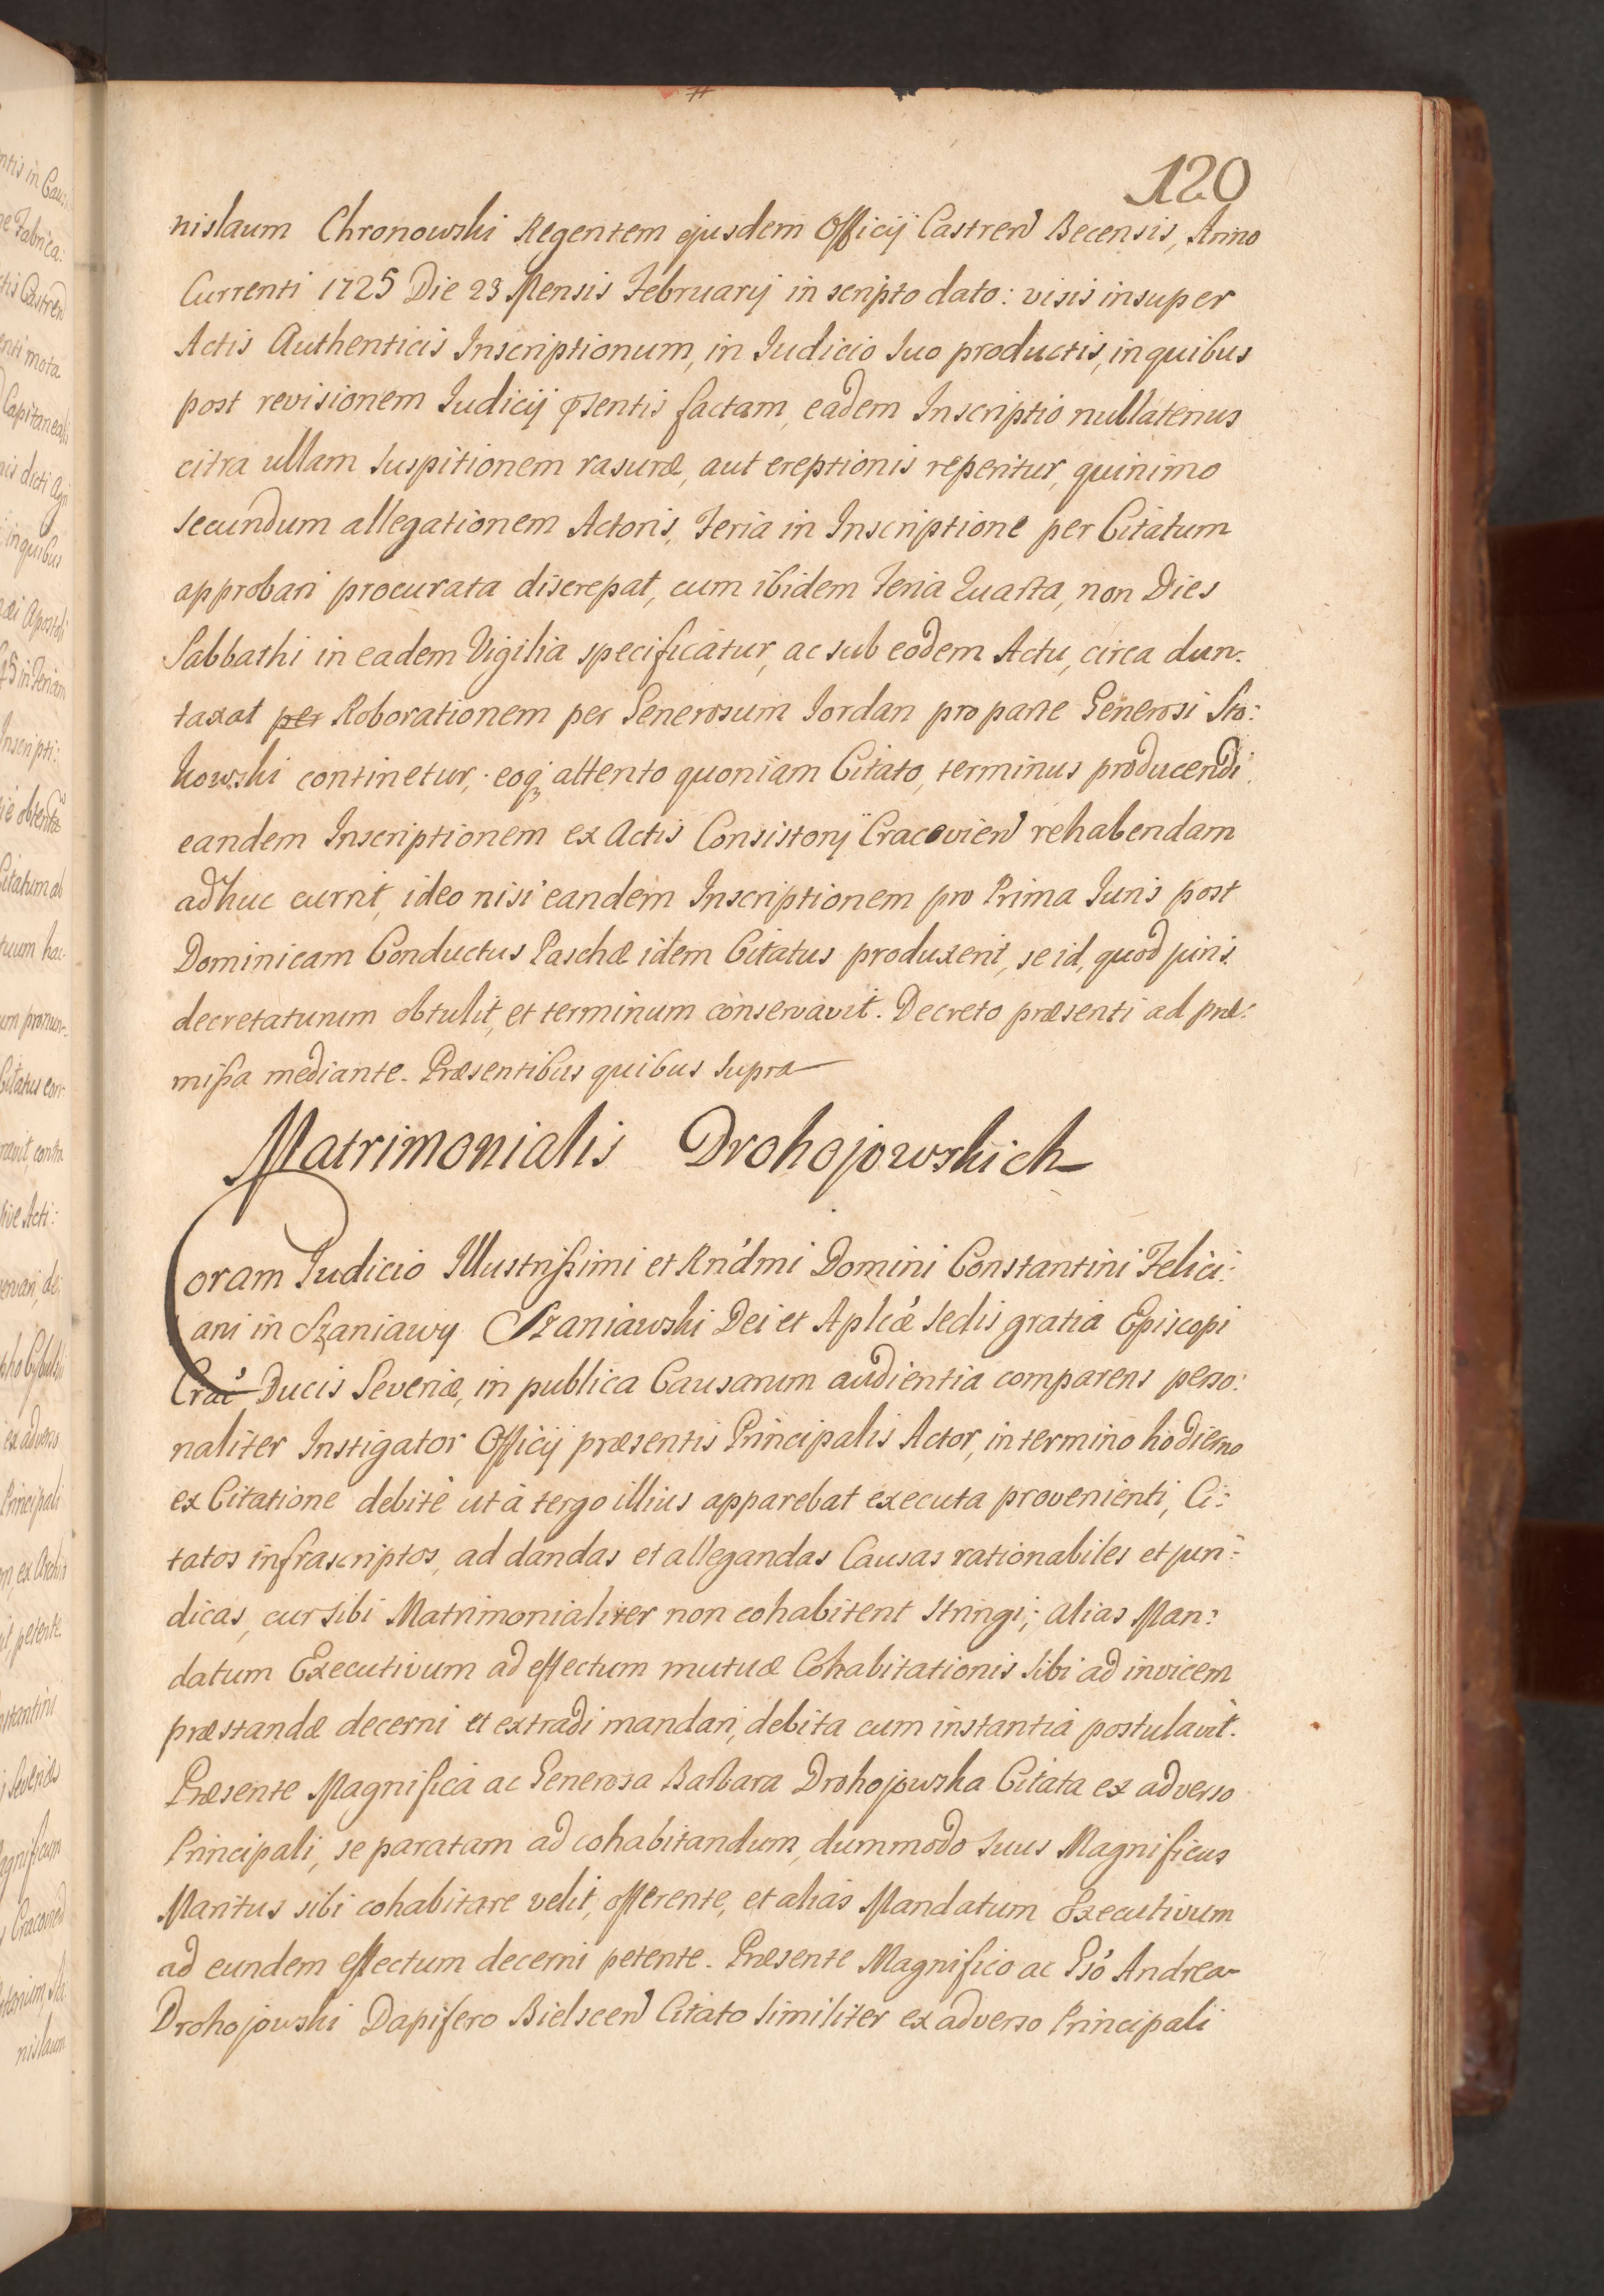 120
nislaum Chronowski Regentem ejusdem Officij Castren Becensis, Anno
Currenti 1725 Die 23 Mensis Februarij in scripto dato: visis insuper
Actis Authenticis Inscriptionum, in Iudicio suo productis, in quibus
post revisionem Iudicij psentis factam, eadem Inscriptio nullatenus
citra ullam suspitionem rasuræ, aut ereptionis reperitur, quinimo
secundum allegationem Actoris, Feria in Inscriptione per Citatum
approbari procurata discrepat, cum ibidem Feria Quarta, non Dies
Sabbathi in eadem Vigilia specificatur, ac sub eodem Actu, circa dun:
taxat per Roborationem per Generosum Iordan pro parte Generosi Sto:
kowski continetur, eoq3 attento quoniam Citato, terminus producendi
eandem Inscriptionem ex Actis Consistorij Cracovien rehabendam
adhuc currit, ideo nisi eandem Inscriptionem pro Prima Iuris post
Dominicam Conductus Paschæ idem Citatus produxerit, se id, quod juris
decretaturum obtulit, et terminum conservavit. Decreto præsenti ad præ:
missa mediante. Præsentibus quibus supra
Matrimonialis Drohojowskich
Coram Iudicio Illustrissimi et Rndmi Domini Constantini Felici:
ani in Szaniawy Szaniawski Dei et Aplicæ Sedis gratia Episcopi
Crac Ducis Severiæ, in publica Causarum audientia comparens perso:
naliter Instigator Officij præsentis Principalis Actor, in termino hodierno
ex Citatione debite ut à tergo illius apparebat executa provenienti, Ci:
tatos infrascriptos, ad dandas et allegandas Causas rationabiles et juri:
dicas, cur sibi Matrimonialiter non cohabitent stringi; alias Man:
datum Executivum ad effectum mutuæ Cohabitationis sibi ad invicem
præstandæ decerni et extradi mandari, debita cum instantia postulavit.
Præsente Magnifica ac Generosa Barbara Drohojowska Citata ex adverso
Principali, se paratam ad cohabitandum, dummodo suus Magnificus
Maritus sibi cohabitare velit, offerente, et alias Mandatum Executivum
ad eundem effectum decerni petente. Præsente Magnifico ac Gso Andrea
Drohojowski Dapifero Bielscen Citato similiter ex adverso Principali